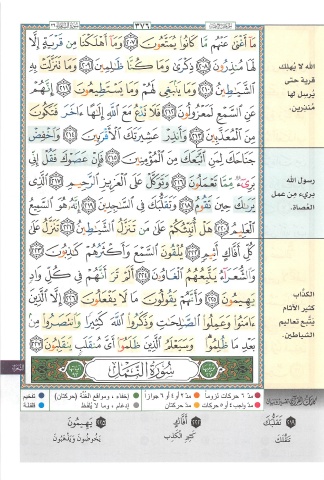 ٣٧٦
مَآ أَغْنَىٰ عَنْهُم مَّا كَانُوا۟ يُمَتَّعُونَ ﴿٢٠٧﴾ وَمَآ أَهْلَكْنَا مِن قَرْيَةٍ إِلَّا
لَهَا مُنذِرُونَ ﴿٢٠٨﴾ ذِكْرَىٰ وَمَا كُنَّا ظَٰلِمِينَ ﴿٢٠٩﴾ وَمَا تَنَزَّلَتْ بِهِ
ٱلشَّيَٰطِينُ ﴿٢١٠﴾ وَمَا يَنۢبَغِى لَهُمْ وَمَا يَسْتَطِيعُونَ ﴿٢١١﴾ إِنَّهُمْ
عَنِ ٱلسَّمْعِ لَمَعْزُولُونَ ﴿٢١٢﴾ فَلَا تَدْعُ مَعَ ٱللَّهِ إِلَٰهًا ءَاخَرَ فَتَكُونَ
مِنَ ٱلْمُعَذَّبِينَ ﴿٢١٣﴾ وَأَنذِرْ عَشِيرَتَكَ ٱلْأَقْرَبِينَ ﴿٢١٤﴾ وَٱخْفِضْ
جَنَاحَكَ لِمَنِ ٱتَّبَعَكَ مِنَ ٱلْمُؤْمِنِينَ ﴿٢١٥﴾ فَإِنْ عَصَوْكَ فَقُلْ إِنِّى
بَرِىٓءٌ مِّمَّا تَعْمَلُونَ ﴿٢١٦﴾ وَتَوَكَّلْ عَلَى ٱلْعَزِيزِ ٱلرَّحِيمِ ﴿٢١٧﴾ ٱلَّذِى
يَرَىٰكَ حِينَ تَقُومُ ﴿٢١٨﴾ وَتَقَلُّبَكَ فِى ٱلسَّٰجِدِينَ ﴿٢١٩﴾ إِنَّهُۥ هُوَ ٱلسَّمِيعُ
ٱلْعَلِيمُ ﴿٢٢٠﴾ هَلْ أُنَبِّئُكُمْ عَلَىٰ مَن تَنَزَّلُ ٱلشَّيَٰطِينُ ﴿٢٢١﴾ تَنَزَّلُ عَلَىٰ
كُلِّ أَفَّاكٍ أَثِيمٍ ﴿٢٢٢﴾ يُلْقُونَ ٱلسَّمْعَ وَأَكْثَرُهُمْ كَٰذِبُونَ ﴿٢٢٣﴾
وَٱلشُّعَرَآءُ يَتَّبِعُهُمُ ٱلْغَاوُۥنَ ﴿٢٢٤﴾ أَلَمْ تَرَ أَنَّهُمْ فِى كُلِّ وَادٍ
يَهِيمُونَ ﴿٢٢٥﴾ وَأَنَّهُمْ يَقُولُونَ مَا لَا يَفْعَلُونَ ﴿٢٢٦﴾ إِلَّا ٱلَّذِينَ
ءَامَنُوا۟ وَعَمِلُوا۟ ٱلصَّٰلِحَٰتِ وَذَكَرُوا۟ ٱللَّهَ كَثِيرًا وَٱنتَصَرُوا۟ مِنۢ
بَعْدِ مَا ظُلِمُوا۟ وَسَيَعْلَمُ ٱلَّذِينَ ظَلَمُوٓا۟ أَىَّ مُنقَلَبٍ يَنقَلِبُونَ ﴿٢٢٧﴾
سُورَةُ النَّمْلِ
الله لا يُهلِك
قرية حتى
يُرسل لها
مُنذِرين.
رسول الله
بريء مِن عمل
العُصاة.
الكذّاب
كثير الآثام
يتّبع تعاليم
الشياطين.
مدّ ٦ حركات لزوماً
مدّ ٢ أو ٤ أو ٦ جوازاً
إخفاء، ومواقع الغُنَّة (حركتان)
تفخيم
مدّ واجب ٤ أو ٥ حركات
مدّ حركتان
إدغام، وما لا يُلفَظ
قلقلة
تَقَلُّبَكَ
تَنَقُّلَكَ
أَفَّاكٍ
كَثِيرِ الْكَذِبِ
يَهِيمُونَ
يَخُوضُونَ وَيَذْهَبُونَ